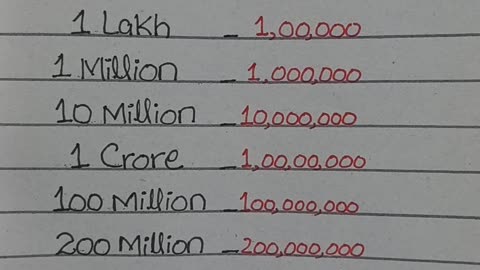 1 Lakh - 1,00,000
1 Million - 1,000,000
10 Million - 10,000,000
1 Crore - 1,00,00,000
100 Million - 100,000,000
200 Million - 200,000,000